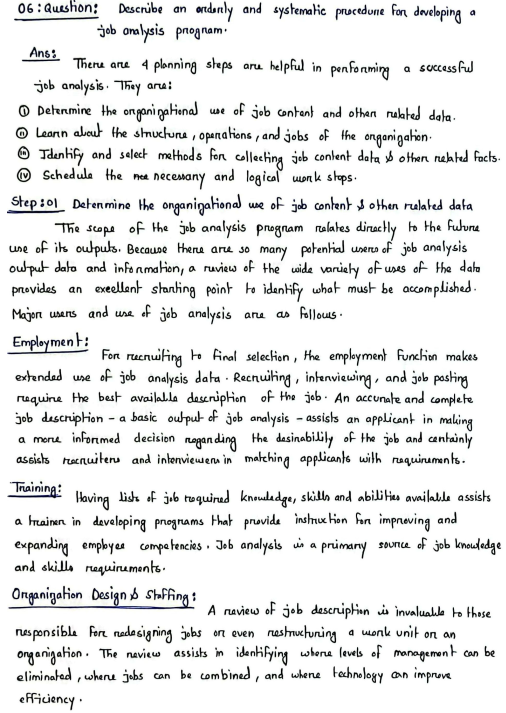 06: Question: Describe an orderly and systematic procedure for developing a
job analysis program.
Ans:
There are 4 planning steps are helpful in performing a successful
job analysis. They are:
(i) Determine the organizational use of job content and other related data.
(ii) Learn about the structure, operations, and jobs of the organization.
(iii) Identify and select methods for collecting job content data & other related facts.
(iv) Schedule the necessary and logical work steps.
Step:01 Determine the organizational use of job content & other related data
The scope of the job analysis program relates directly to the future
use of its outputs. Because there are so many potential users of job analysis
output data and information, a review of the wide variety of uses of the data
provides an excellent starting point to identify what must be accomplished.
Major users and use of job analysis are as follows.
Employment:
For recruiting to final selection, the employment function makes
extended use of job analysis data. Recruiting, interviewing, and job posting
require the best available description of the job. An accurate and complete
job description - a basic output of job analysis - assists an applicant in making
a more informed decision regarding the desirability of the job and certainly
assists recruiters and interviewers in matching applicants with requirements.
Training:
Having lists of job required knowledge, skills and abilities available assists
a trainer in developing programs that provide instruction for improving and
expanding employee competencies. Job analysis is a primary source of job knowledge
and skills requirements.
Organization Design & Staffing:
A review of job description is invaluable to those
responsible for redesigning jobs or even restructuring a work unit or an
organization. The review assists in identifying where levels of management can be
eliminated, where jobs can be combined, and where technology can improve
efficiency.